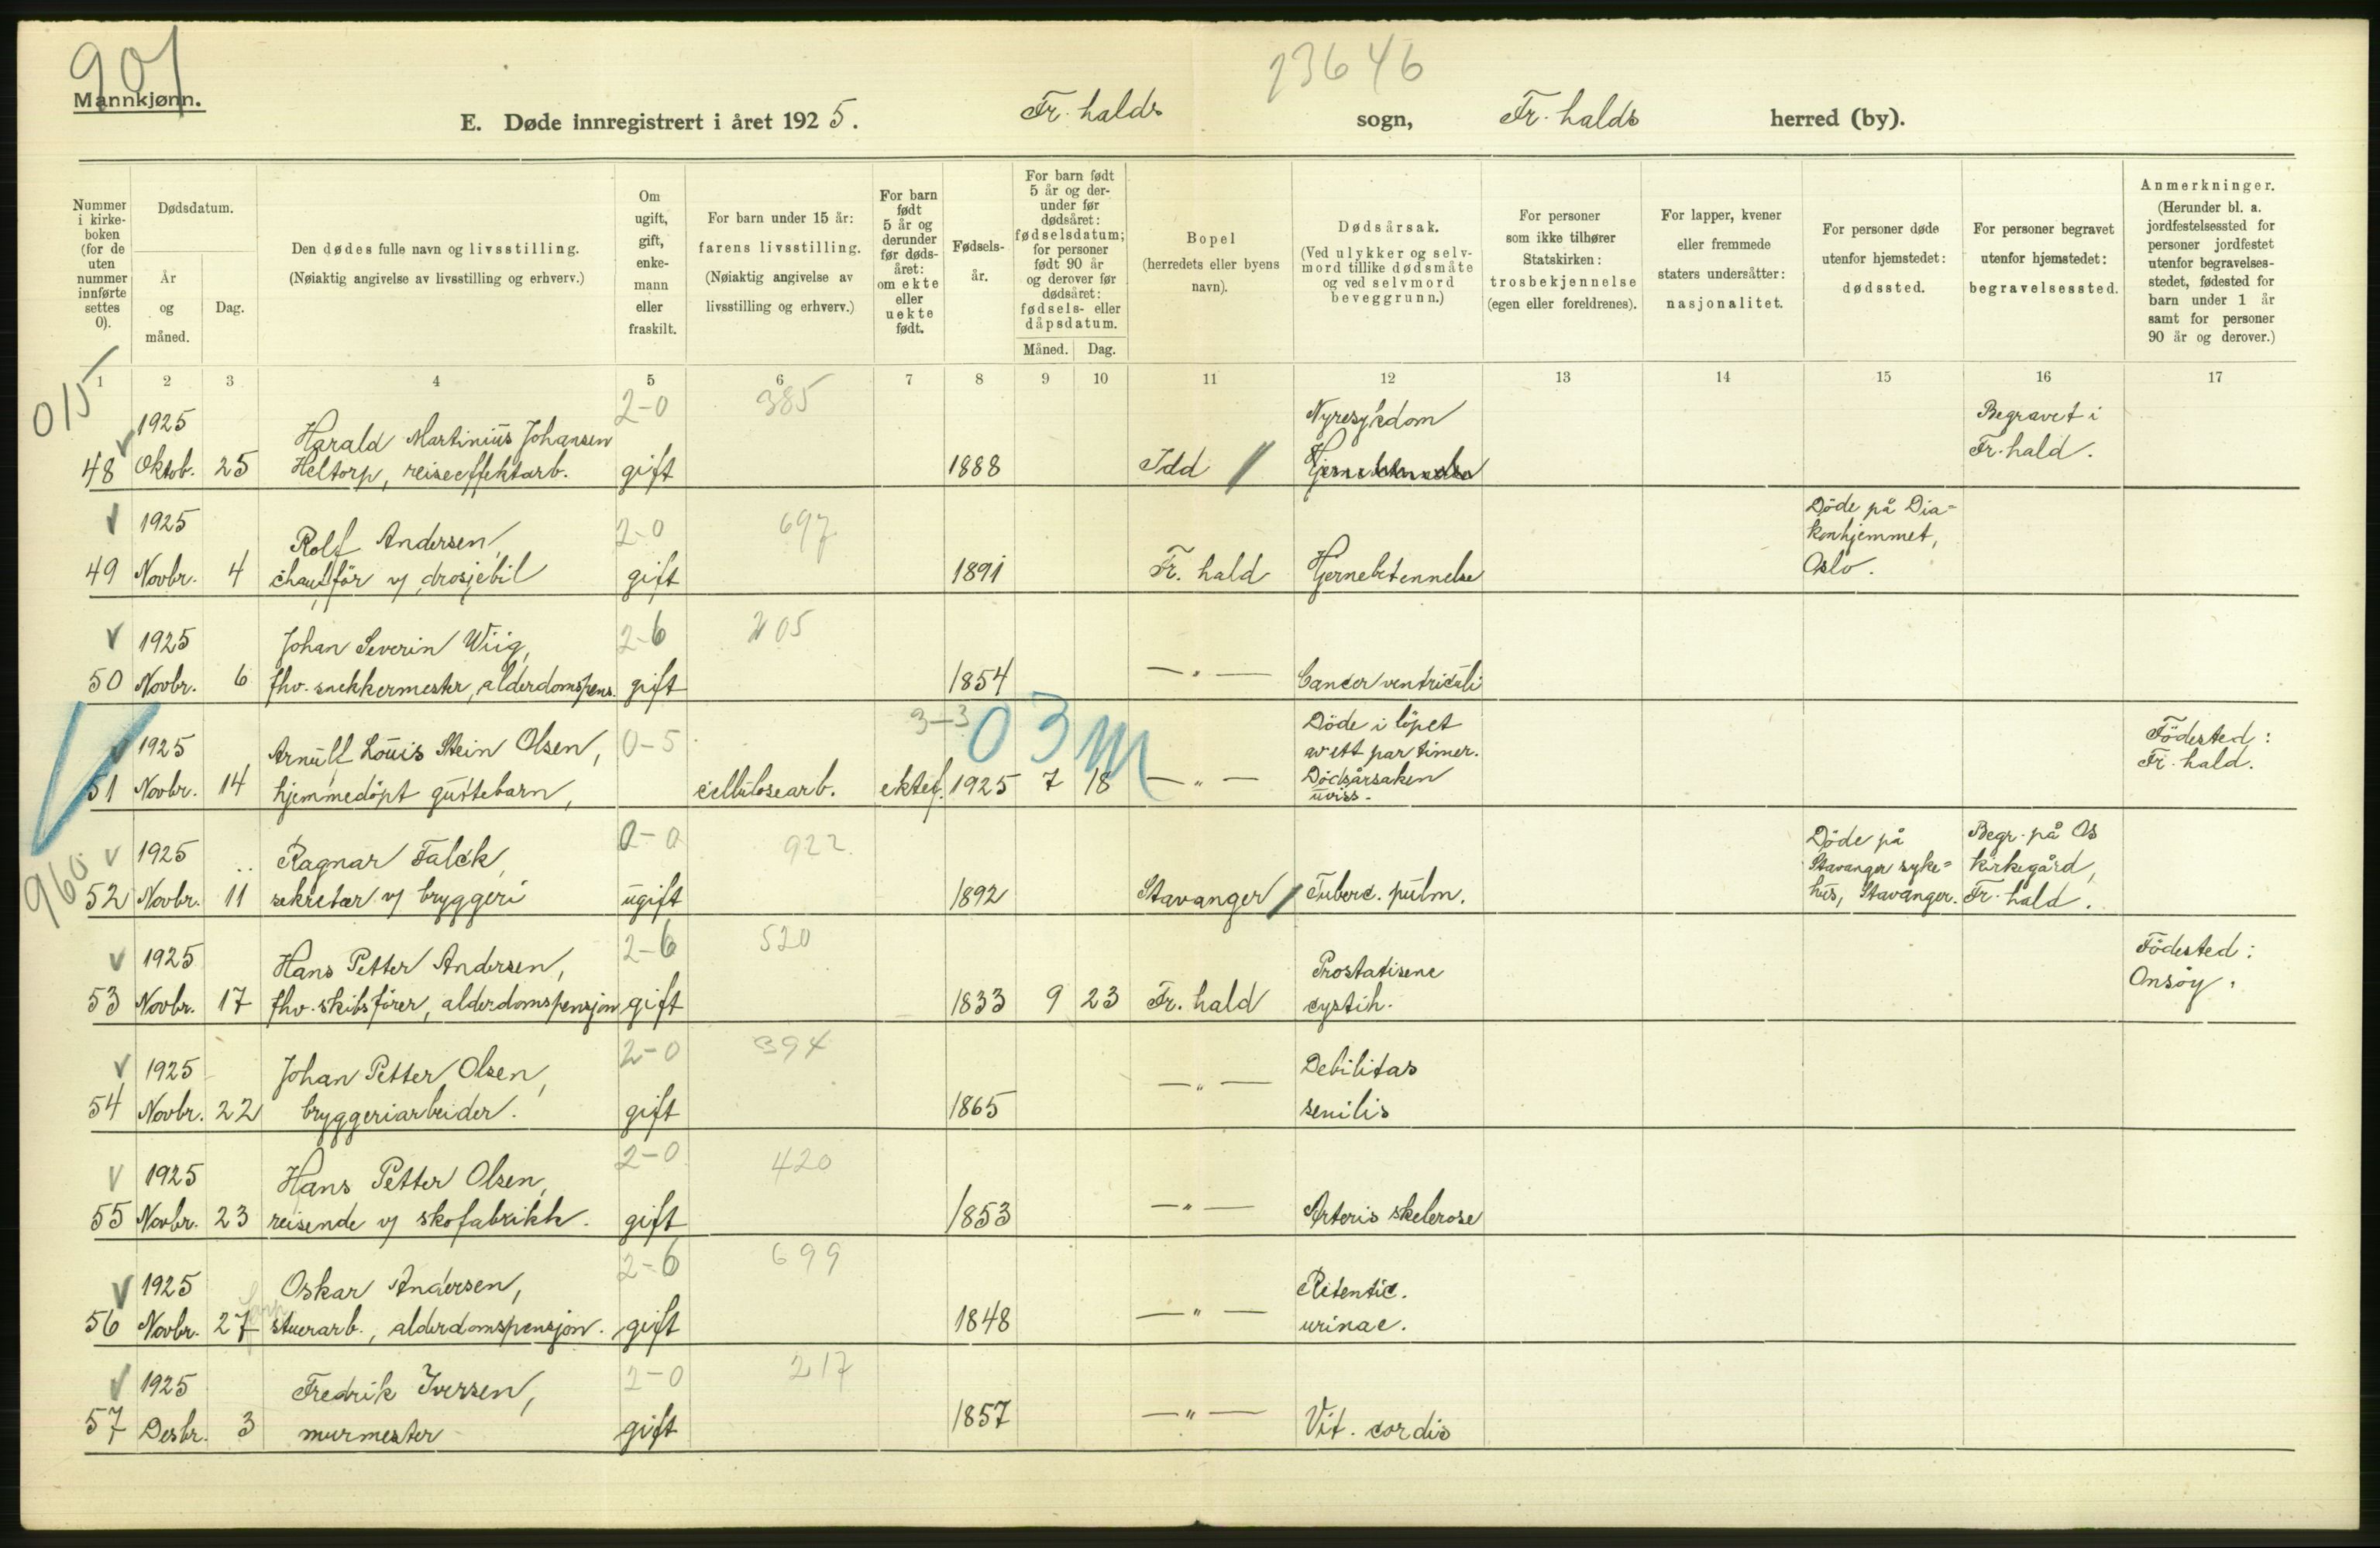 901
23646
Mannkjønn.
E. Døde innregistrert i året 1925. Fr. halds sogn, Fr. halds herred (by).
Nummer i kirkeboken (for de uten nummer innførte settes 0).
Dødsdatum.
År og måned.
Dag.
Den dødes fulle navn og livsstilling.
(Nøiaktig angivelse av livsstilling og erhverv.)
Om ugift, gift, enkemann eller fraskilt.
For barn under 15 år:
farens livsstilling.
(Nøiaktig angivelse av livsstilling og erhverv.)
For barn født 5 år og derunder før dødsåret: om ekte eller uekte født.
Fødselsår.
For barn født 5 år og derunder før dødsåret: fødselsdatum; for personer født 90 år og derover før dødsåret: fødsels- eller dåpsdatum.
Måned. Dag.
Bopel
(herredets eller byens navn).
Dødsårsak.
(Ved ulykker og selvmord tillike dødsmåte og ved selvmord beveggrunn.)
For personer som ikke tilhører Statskirken:
trosbekjennelse
(egen eller foreldrenes).
For lapper, kvener eller fremmede staters undersåtter:
nasjonalitet.
For personer døde utenfor hjemstedet:
dødssted.
For personer begravet utenfor hjemstedet:
begravelsessted.
Anmerkninger.
(Herunder bl. a. jordfestelsessted for personer jordfestet utenfor begravelsesstedet, fødested for barn under 1 år samt for personer 90 år og derover.)
1 2 3 4 5 6 7 8 9 10 11 12 13 14 15 16 17
015
1925 2-0 385 Nyresykdom Begravet i
Harald Martinius Johansen Fr. hald.
48 Oktob. 25 Heltorp, reiseeffektarb. gift 1888 Idd
1925 2-0 697 Döde på Dia-
Rolf Andersen, konhjemmet,
49 Novbr. 4 chaufför v/ drosjebil gift 1891 Fr. hald Hjernebetennelse Oslo.
1925 Johan Severin Wiig, 2-6 205
50 Novbr. 6 fhv. snekkermester, alderdomspens. gift 1854 —"— Cancer ventriculi
3-3 03 m Döde i löpet
1925 Arnulf Louis Stein Olsen, 0-5 av ett par timer. Födested:
51 Novbr. 14 hjemmedöpt guttebarn, cellulosearb. ektef. 1925 7 18 —"— Dödsårsaken Fr. hald.
uviss.
960
1925 Ragnar Falck, 0-0 922 Döde på Begr. på Os
Stavanger syke- kirkegård,
52 Novbr. 11 sekretær v/ bryggeri ugift 1892 Stavanger Tuberc. pulm. hus, Stavanger. Fr. hald.
1925 Hans Petter Andersen, 2-6 520 Födested:
53 Novbr. 17 fhv. skibsförer, alderdomspensjon gift 1833 9 23 Fr. hald cystih. Onsöy.
1925 Johan Petter Olsen, 2-0 394 Debilitas
54 Novbr. 22 bryggeriarbeider. gift 1865 —"— senilis
1925 Hans Petter Olsen, 2-0 420
55 Novbr. 23 reisende v/ skofabrikk. gift 1853 —"— Arterio skelerose
1925 Oskar Andersen, 2-6 699 Retentic.
56 Novbr. 27 stuerarb., alderdomspensjon. gift 1848 —"— urinae.
1925 Fredrik Iversen, 2-0 217
57 Desbr. 3 murmester gift 1857 —"— Vit. cordis